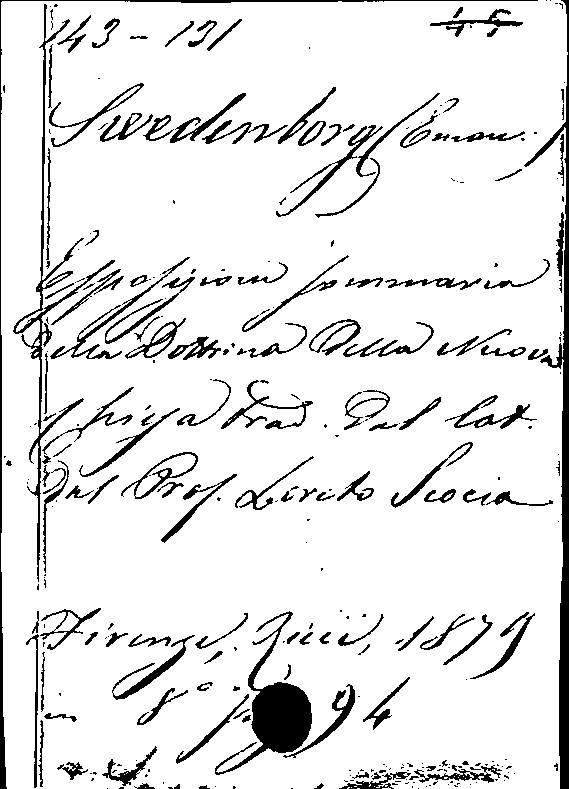 143 - 131
Swedenborg (Eman.)
Esposizione sommaria
della Dottrina della Nuova
Chiesa trad. dal lat.
dal Prof. Loreto Scocia
Firenze, Ricci, 1879
in 8° 94